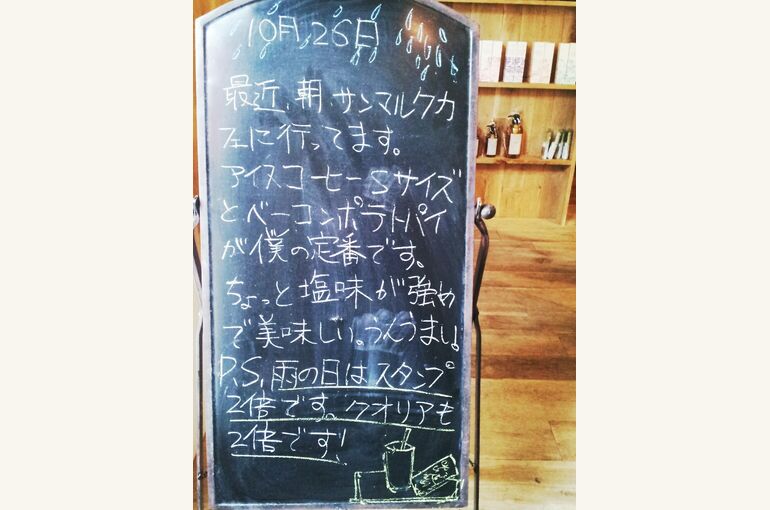 10月26日
最近、朝、サンマルクカ
フェに行ってます。
アイスコーヒーSサイズ
とベーコンポテトパイ
が僕の定番です。
ちょっと塩味が強め
で美味しい。うんうまいよ
P.S.雨の日はスタンプ
2倍です。クオリアも
2倍です!